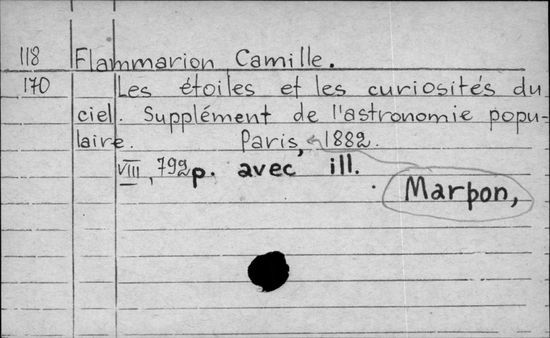 118 Flammarion Camille.
170 Les étoiles et les curiosités du
ciel. Supplément de l'astronomie popu-
laire. Paris, 1882.
VIII, 792p. avec ill.
Marpon,